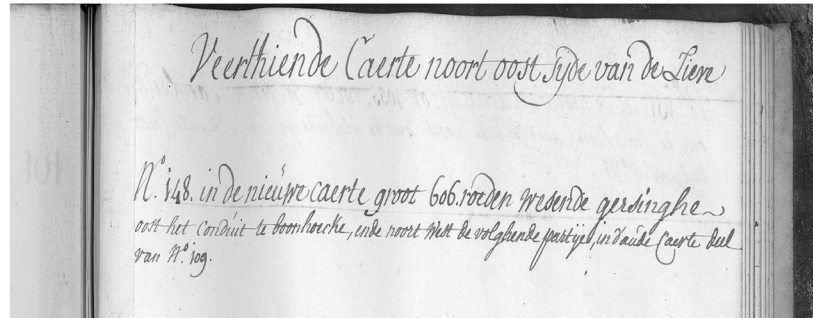 Veerthiende Caerte noort oost syde van de Lieve
N.º 148. in de nieuwe caerte groot 606. roeden wesende gersinghe
oost het Conduit te boonhoecke, ende noort west de volghende partije, in d'aude Caerte deel
van N.º 109.